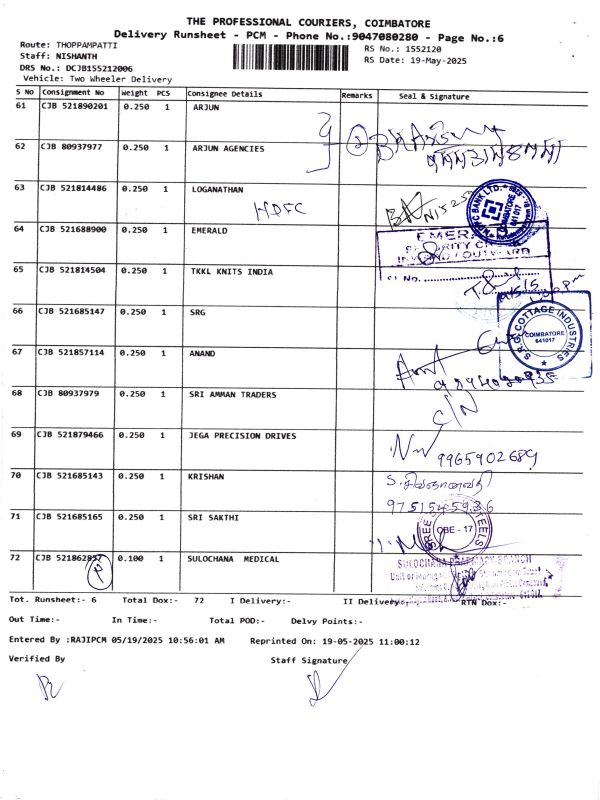 THE PROFESSIONAL COURIERS, COIMBATORE
Delivery Runsheet - PCM - Phone No.:9047080280 - Page No.:6
Route: THOPPAMPATTI
RS No.: 1552120
Staff: NISHANTH
RS Date: 19-May-2025
DRS No.: DCJB155212006
Vehicle: Two Wheeler Delivery
S No Consignment No Weight PCS Consignee Details Remarks Seal & Signature
61 CJB 521890201 0.250 1 ARJUN
62 CJB 80937977 0.250 1 ARJUN AGENCIES
63 CJB 521814486 0.250 1 LOGANATHAN
HDFC
BANK LTD.
COIMBATORE
641 017
64 CJB 521688900 0.250 1 EMERALD
INWARD / OUTWARD
65 CJB 521814504 0.250 1 TKKL KNITS INDIA
66 CJB 521685147 0.250 1 SRG
S.R.G. COTTAGE INDUSTRIES
COIMBATORE
641017
67 CJB 521857114 0.250 1 ANAND
68 CJB 80937979 0.250 1 SRI AMMAN TRADERS
C/N
69 CJB 521879466 0.250 1 JEGA PRECISION DRIVES
9965902689
70 CJB 521685143 0.250 1 KRISHAN
9751545936
71 CJB 521685165 0.250 1 SRI SAKTHI
CBE - 17
72 CJB 521862857 0.100 1 SULOCHANA MEDICAL
Tot. Runsheet:- 6 Total Dox:- 72 I Delivery:- II Delivery:- RTN Dox:-
Out Time:- In Time:- Total POD:- Delvy Points:-
Entered By :RAJIPCM 05/19/2025 10:56:01 AM Reprinted On: 19-05-2025 11:00:12
Verified By Staff Signature